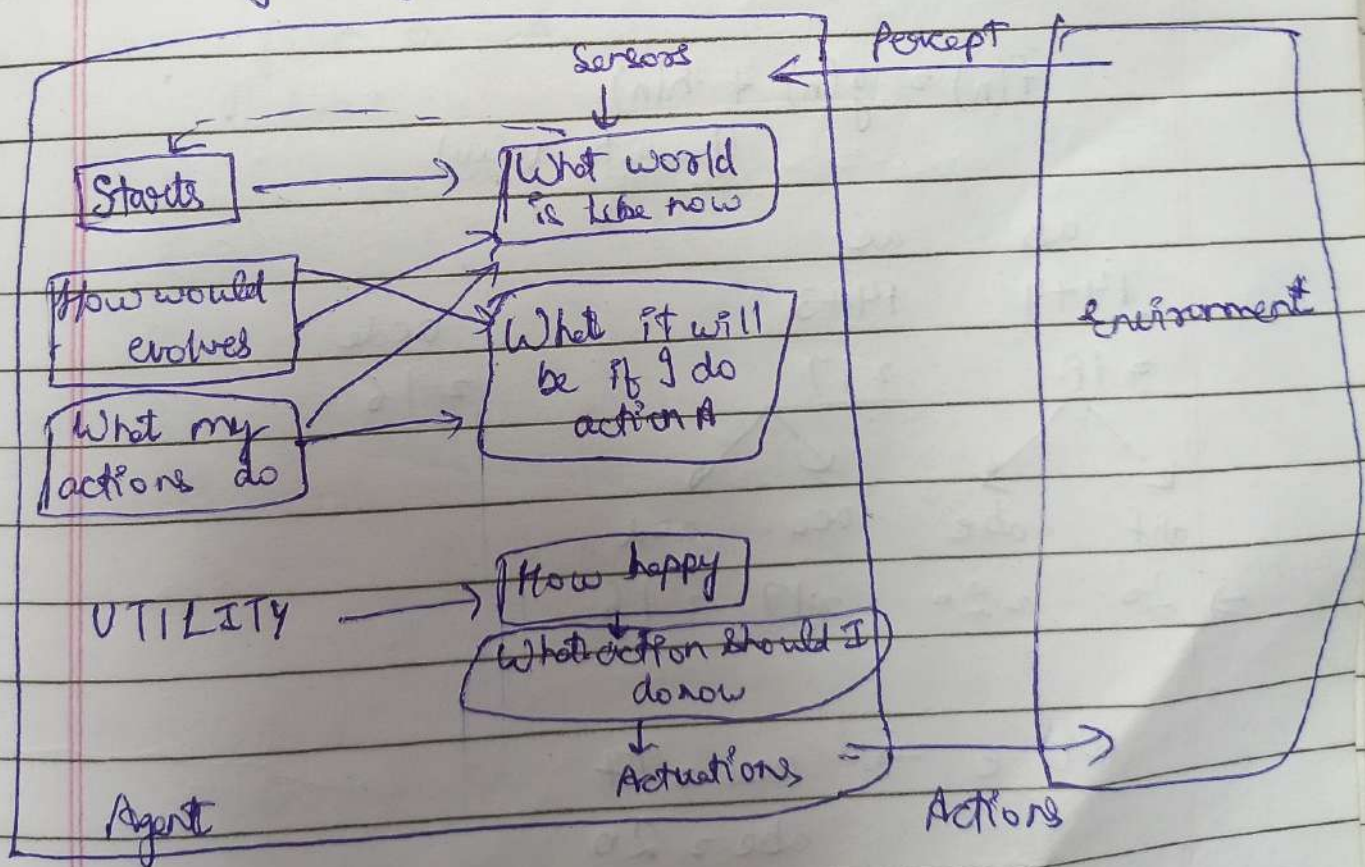 Sensors
Percept
Starts
What world
is like now
How would
evolves
What it will
be if I do
action A
Environment
What my
actions do
UTILITY
How happy
What action should I
do now
Actuations
Agent
Actions